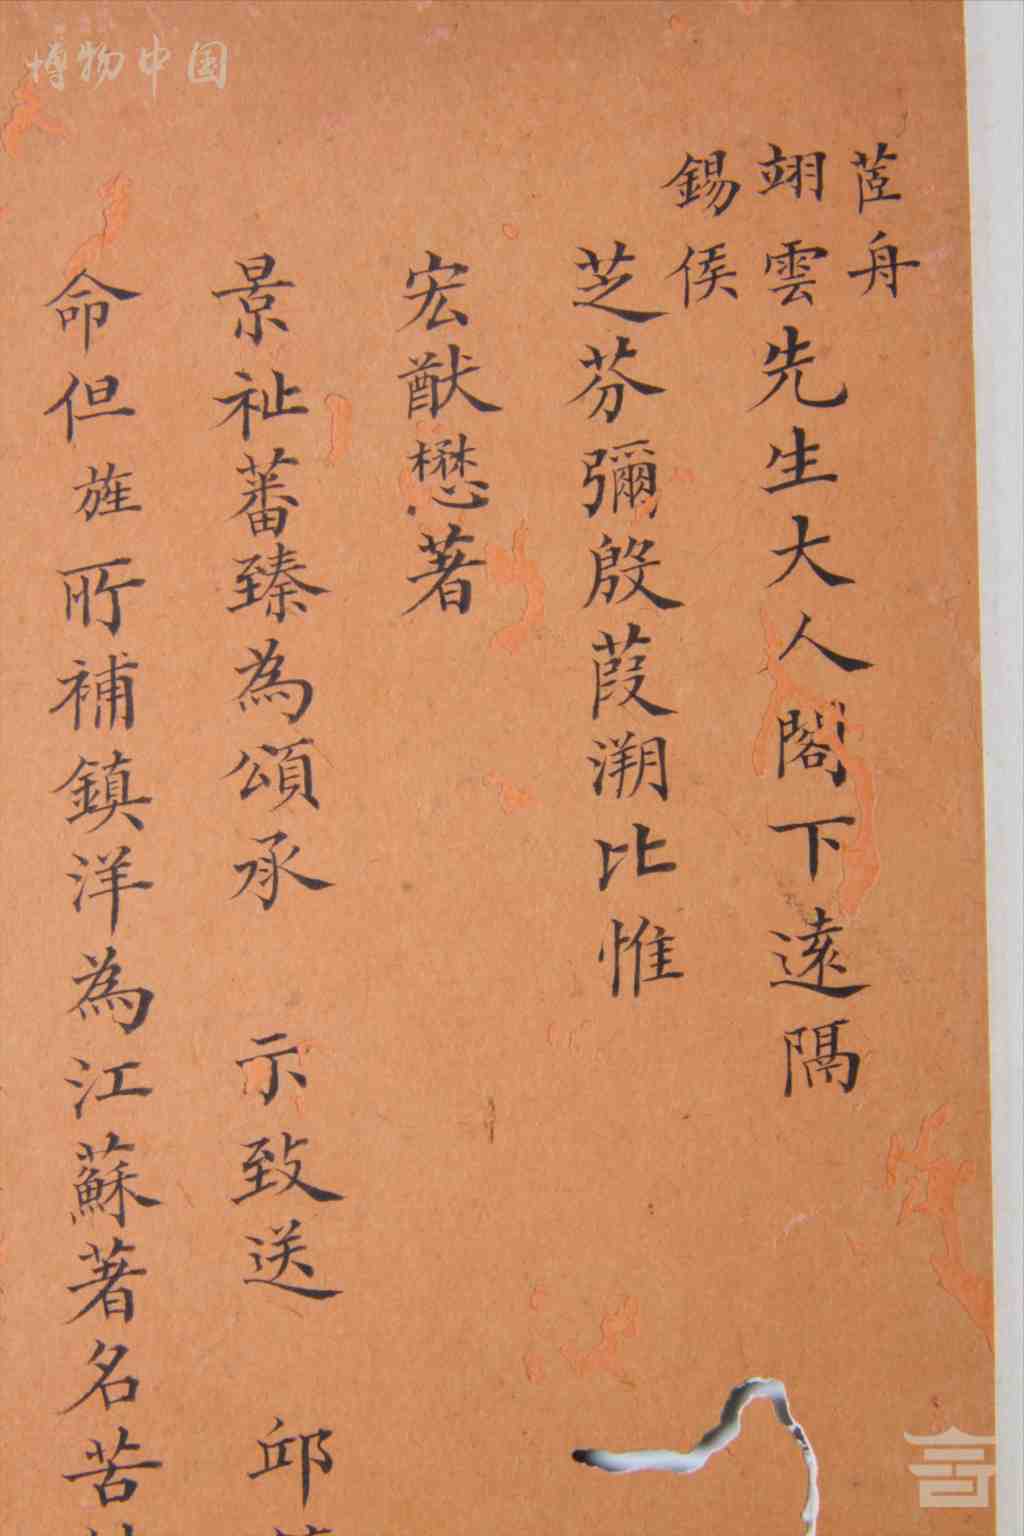 博物中国
莅舟
翊雲先生大人閣下遠隔
錫侯
芝芬彌殷葭溯比惟
宏猷懋著
景祉蕃臻為頌承 示致送 邱
命但旌所補鎮洋為江蘇著名苦